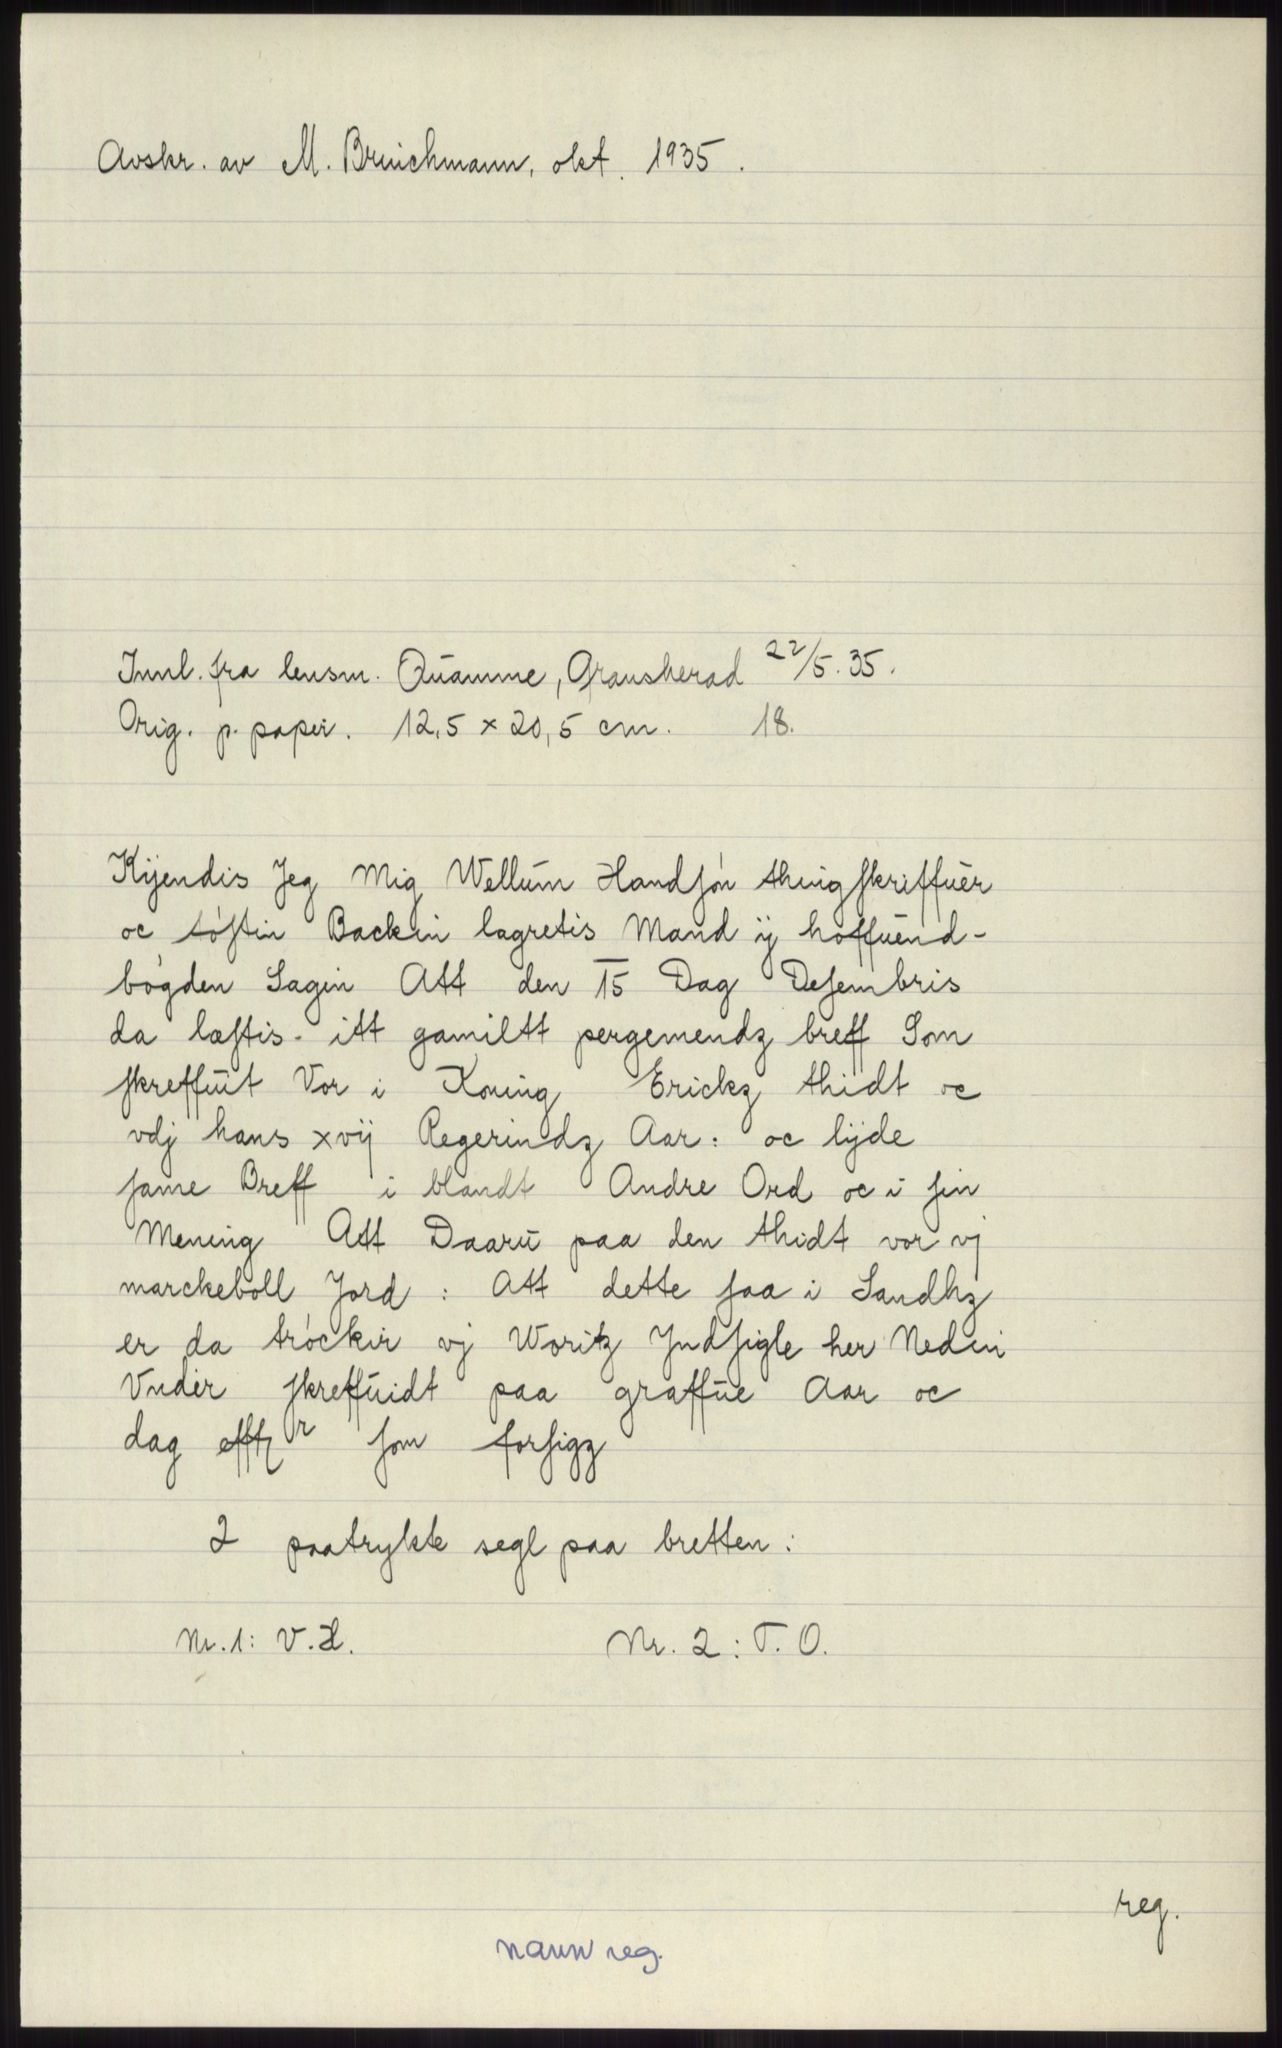 Avskr. av M. Brinchmann, okt. 1935.
Innl. fra lensm. Quamme, Gransherad 22/5. 35.
Orig. p. papir. 12,5 x 20,5 cm. 18.
Kijendis Jeg Mig Wellum Handsón thingskriffuer
oc tóstin Backin lagretis Mand ij hoffuend-
bógden Sagin Att den 15 Dag Desembris
da læstis itt gamiltt pergemendz breff Som
skreffuit Vor i Koning Erickz thidt oc
vdj hans xvij Regerindz Aar: oc lijde
same Breff i blandt Andre Ord oc i sin
Mening Att Daaru paa den thidt vor vj
marckeboll Jord: Att dette saa i Sandhz
er da tróckir vj Woritz Jndsigle her Neden
Vnder skreffuidt paa graffue Aar oc
dag efftr som forsigz
2 paatrykte segl paa bretten:
Nr. 1: V. H. Nr. 2: T. O.
reg.
navn reg.